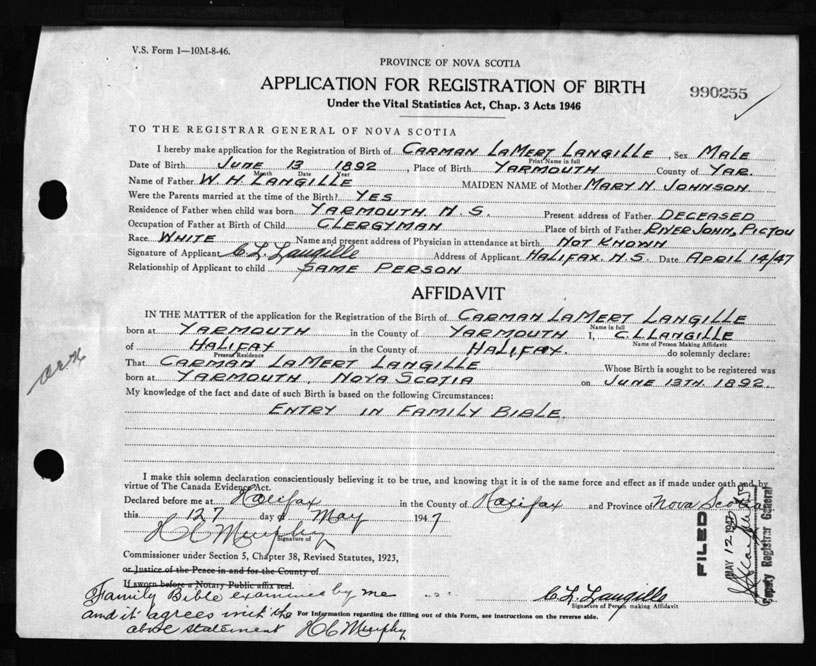 V.S. Form 1—10M-8-46.
PROVINCE OF NOVA SCOTIA
APPLICATION FOR REGISTRATION OF BIRTH
990255
Under the Vital Statistics Act, Chap. 3 Acts 1946
TO THE REGISTRAR GENERAL OF NOVA SCOTIA
I hereby make application for the Registration of Birth of CARMAN LAMERT LANGILLE, Sex MALE
Print Name in full
Date of Birth JUNE 13 1892, Place of Birth YARMOUTH County of YAR.
Month Date Year
Name of Father W. H. LANGILLE MAIDEN NAME of Mother MARY N. JOHNSON
Were the Parents married at the time of the Birth? YES
Residence of Father when child was born YARMOUTH. N.S. Present address of Father DECEASED
Occupation of Father at Birth of Child CLERGYMAN Place of birth of Father RIVER JOHN, PICTOU
Race WHITE Name and present address of Physician in attendance at birth NOT KNOWN
Signature of Applicant C. L. Langille Address of Applicant HALIFAX. N.S. Date APRIL 14/47
Relationship of Applicant to child SAME PERSON
AFFIDAVIT
IN THE MATTER of the application for the Registration of the Birth of CARMAN LAMERT LANGILLE
Name in full
born at YARMOUTH in the County of YARMOUTH I, C. L. LANGILLE
Name of Person Making Affidavit
of HALIFAX in the County of HALIFAX. do solemnly declare:
Present Residence
That CARMAN LAMERT LANGILLE Whose Birth is sought to be registered was
born at YARMOUTH, NOVA SCOTIA on JUNE 13TH. 1892.
My knowledge of the fact and date of such Birth is based on the following Circumstances:
ENTRY IN FAMILY BIBLE.
I make this solemn declaration conscientiously believing it to be true, and knowing that it is of the same force and effect as if made under oath and by
virtue of The Canada Evidence Act.
Declared before me at Halifax in the County of Halifax and Province of Nova Scotia
this 12 day of May 1947
H C Murphy
Signature of
Commissioner under Section 5, Chapter 38, Revised Statutes, 1923,
or Justice of the Peace in and for the County of
If sworn before a Notary Public affix seal.
FILED
MAY 12
Deputy Registrar General
Family Bible examined by me
and it agrees with the
above statement H C Murphy
C. L. Langille
Signature of Person making Affidavit
For Information regarding the filling out of this Form, see instructions on the reverse side.